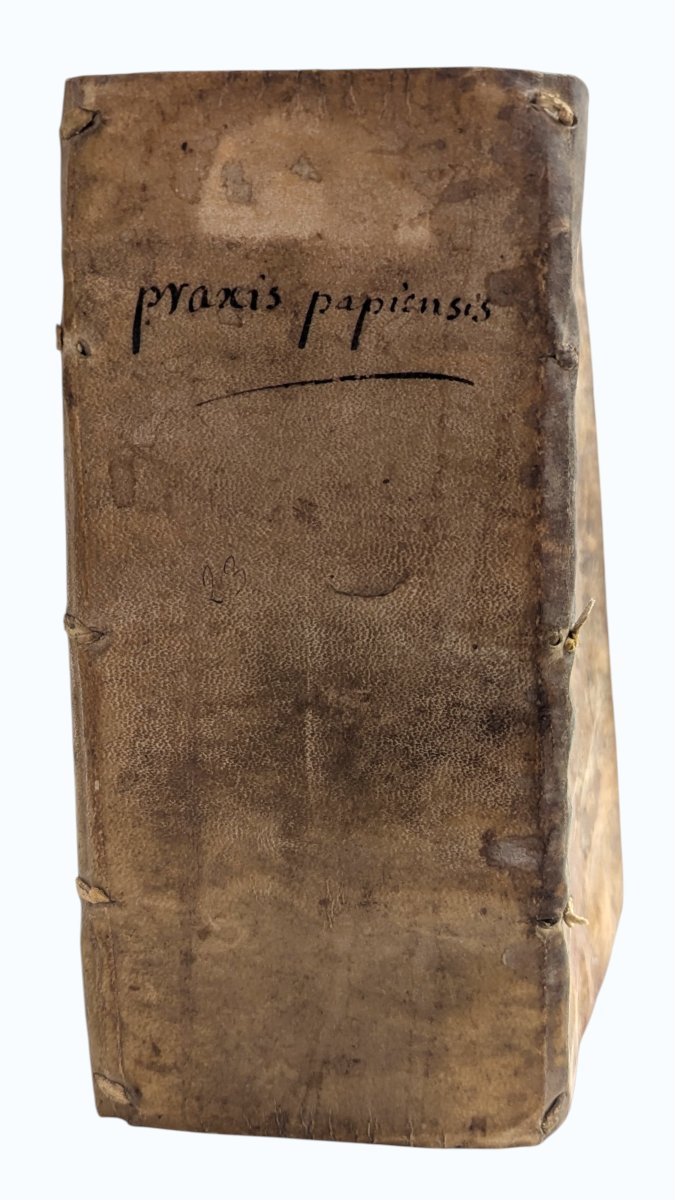 praxis papiensis
23